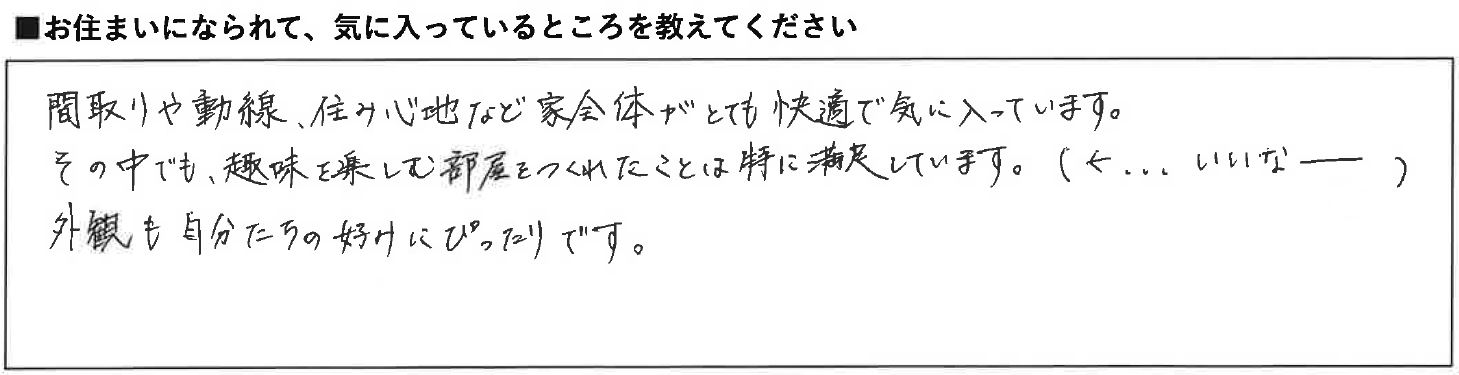 ■お住まいになられて、気に入っているところを教えてください
間取りや動線、住み心地など家全体がとても快適で気に入っています。
その中でも、趣味を楽しむ部屋をつくれたことは特に満足しています。(←... いいなー)
外観も自分たちの好みにぴったりです。